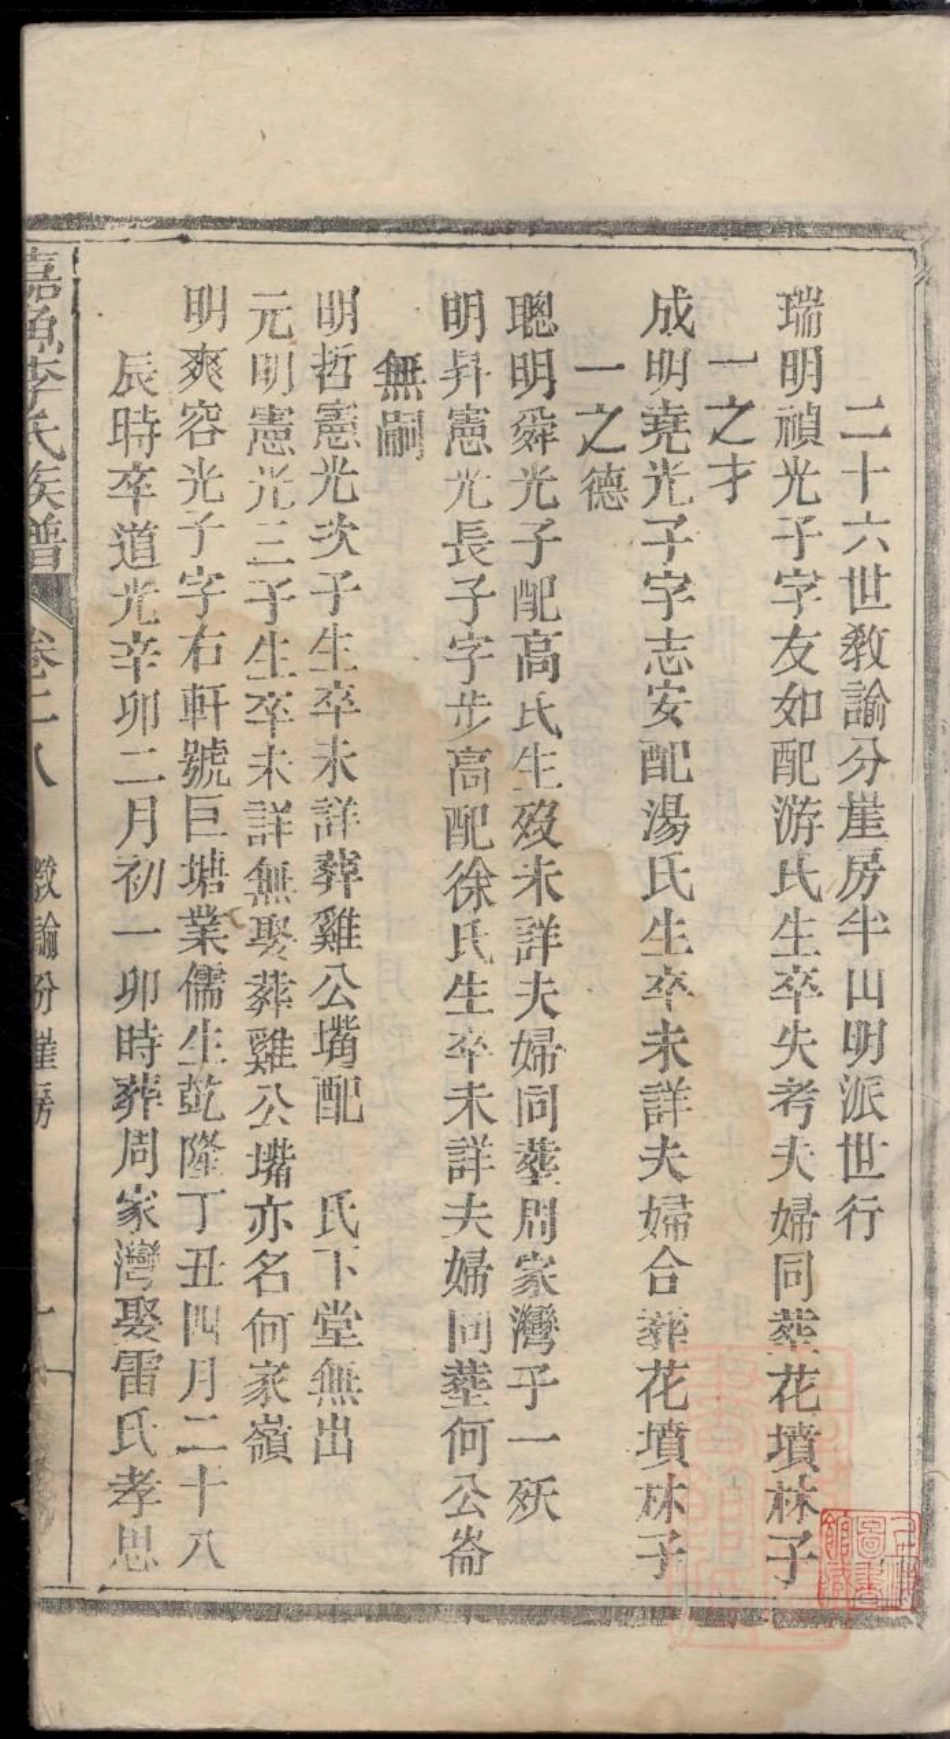 二十六世教諭分崖房半山明派世行
瑞明禎光子字友如配游氏生卒失考夫婦同塟花墳林子
一之才
成明堯光子字志安配湯氏生卒未詳夫婦合葬花墳林子
一之德
聰明舜光子配高氏生歿未詳夫婦同塟周家灣子一殀
明昇憲光長子字步高配徐氏生卒未詳夫婦同塟何公崙
無嗣
明哲憲光次子生卒未詳葬雞公嘴配　氏下堂無出
元明憲光三子生卒未詳無娶葬雞公嘴亦名何家嶺
明爽容光子字右軒號巨塘業儒生乾隆丁丑四月二十八
辰時卒道光辛卯二月初一卯時葬周家灣娶雷氏孝思
嘉魚李氏族譜 卷二八 教諭分崖房
圖書館藏